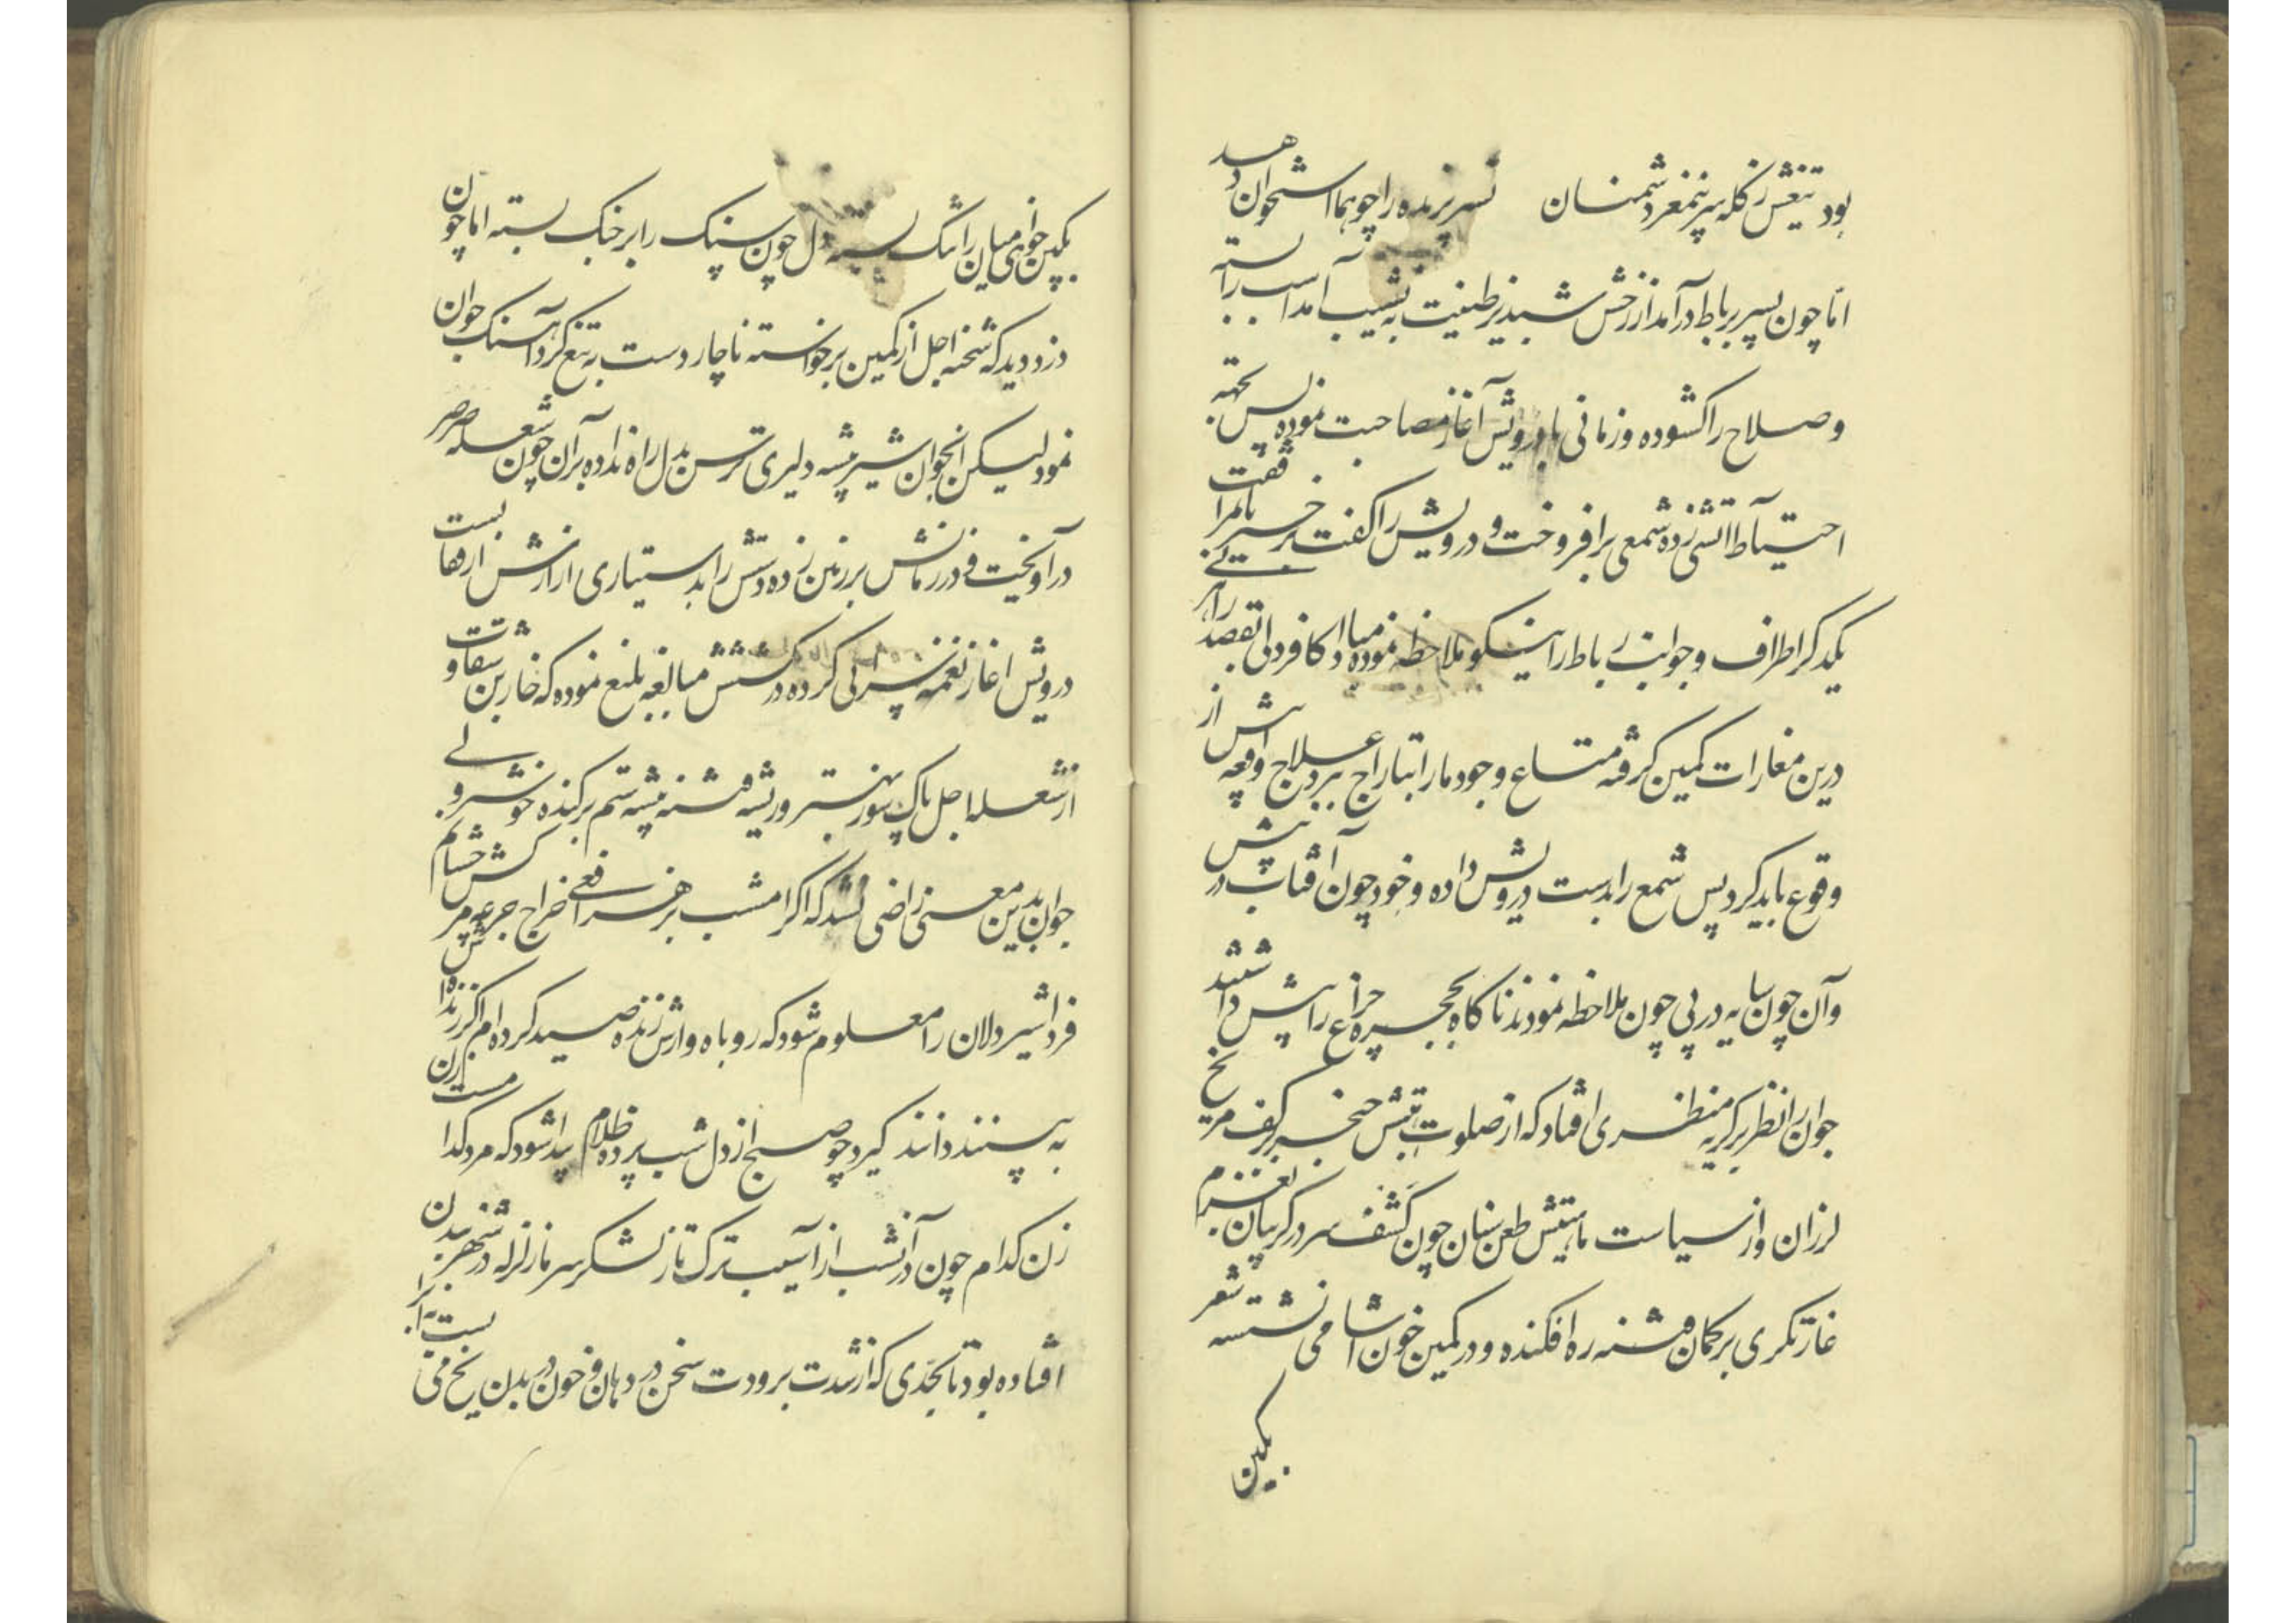 بود تیغش ز کله سر پر نمغر دشمنان نسر پرنده را چو هما استخوان دهد
اما چون بسر برباط درآمد از رخش شبدیز طینت به نشیب آمد اسب را بسته
وصلاح را کشوده و زمانی با درویش آغاز مصاحبت نموده پس بجهة
احتیاط آتشی زده شمعی برافروخت و درویش را کفت برخیز تا بمرافقت
یکدکر اطراف و جوانب رباط را نیکو ملاحظه نموده مبادا کافردلی بقصد
درین مغارات کمین کرفته متاع وجود ما را بتاراج برد علاج واقعه پیش از
وقوع باید کرد پس شمع را بدست درویش داده و خود چون آفتاب در پیش
وآن چون سایه در پی چون ملاحظه نمودند ناکاه بحجره چراغ را پیش داشتند
جوان را نظر بر کریه منظری افتاد که از صلوت تیغش خنجر بکف مریخ
لرزان و از سیاست مارتیش طعن سنان چون کشف سر در کریبان بعزم
غارتکری بر کمان فتنه ره افکنده و در کمین خون آشامی نشسته شعر
بکین
بکین جوانی میان را تنک بسته دل چون سنک را بر جنک بسته اما چون
دزد دید که شحنه اجل از کمین برخواسته ناچار دست به تیغ کرد آهنک جوان
نمود لیکن آنجوان شیر پیشه دلیری ترس بدل راه نداده بر آن چون شعله صرصر
درآویخت فی در زمانش بر زمین زده دستش را بدستیاری ازارش از قفا بست
درویش اغاز نغمه سرائی کرده در کشتنش مبالغه بلیغ نموده که خاربن شقاوت
از شعله اجل پاک بسوز بهتر و ریشه فتنه بتیشه ستم برکنده خوشتر ولی
جوان بدین معنی راضی نشد که اکر امشب بر هر افعی اخراج جرعه مرکش چشانم
فردا شیردلان را معلوم شود که روباه وارش زنده صید کرده ام اکر زنده اش
به بینند دانند کیرد چو صبح از دل شب پرده ظلام پیدا شود که مرد کدامست
زن کدام چون در آنشب از آسیب ترک تاز لشکر سرما زلزله در شهر بدن
افتاده بود تا بحدی که از شدت برودت سخن در دهان و خون در بدن یخ می بست